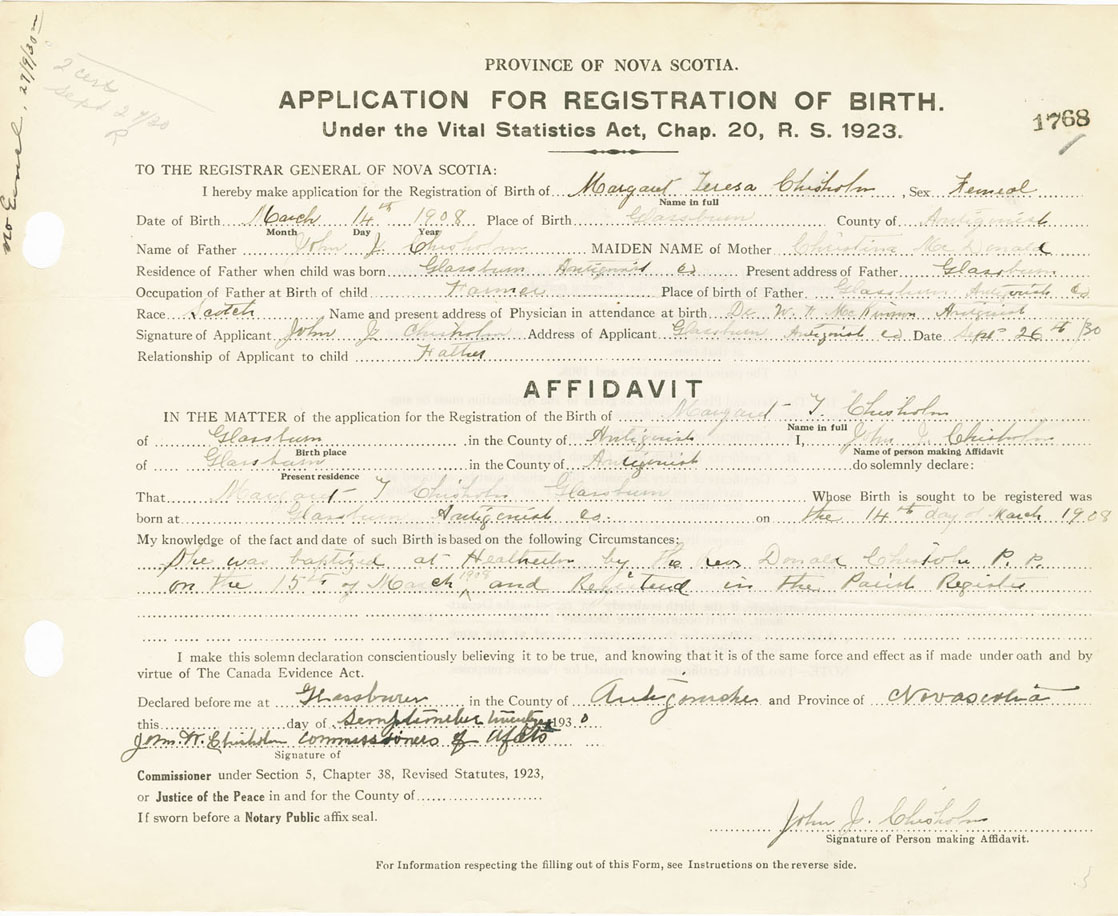 no Enval, 27/9/30
2 cert
Sept 27/30
R
PROVINCE OF NOVA SCOTIA.
APPLICATION FOR REGISTRATION OF BIRTH.
Under the Vital Statistics Act, Chap. 20, R. S. 1923.
1768
TO THE REGISTRAR GENERAL OF NOVA SCOTIA:
I hereby make application for the Registration of Birth of Margaret Teresa Chisholm , Sex Femeal
Name in full
Date of Birth March 14th 1908 Place of Birth Glassburn County of Antigonish
Month Day Year
Name of Father John J. Chisholm MAIDEN NAME of Mother Christina Mc Donald
Residence of Father when child was born Glassburn Antigonish Co Present address of Father Glassburn
Occupation of Father at Birth of child Farmer Place of birth of Father Glassburn Antigonish Co
Race Scotch Name and present address of Physician in attendance at birth Dr. W. F. McKinnon Antigonish
Signature of Applicant John J. Chisholm Address of Applicant Glassburn Antigonish Co Date Sept 26th /30
Relationship of Applicant to child Father
AFFIDAVIT
IN THE MATTER of the application for the Registration of the Birth of Margaret T. Chisholm
Name in full
of Glassburn in the County of Antigonish I, John J. Chisholm
Birth place Name of person making Affidavit
of Glassburn in the County of Antigonish do solemnly declare:
Present residence
That Margaret T Chisholm Glassburn Whose Birth is sought to be registered was
born at Glassburn Antigonish Co. on the 14th day of March 1908
My knowledge of the fact and date of such Birth is based on the following Circumstances:
She was baptized at Heatherton by the Rev Donald Chisholm P. P.
on the 15th of March 1908 and Registerd in the Parish Register
I make this solemn declaration conscientiously believing it to be true, and knowing that it is of the same force and effect as if made under oath and by
virtue of The Canada Evidence Act.
Declared before me at Glassburn in the County of Antigonishe and Province of Novascotia
this day of 1930
John W. Chisholm Commissioners of
Signature of
Commissioner under Section 5, Chapter 38, Revised Statutes, 1923,
or Justice of the Peace in and for the County of
If sworn before a Notary Public affix seal.
John J. Chisholm
Signature of Person making Affidavit.
For Information respecting the filling out of this Form, see Instructions on the reverse side.